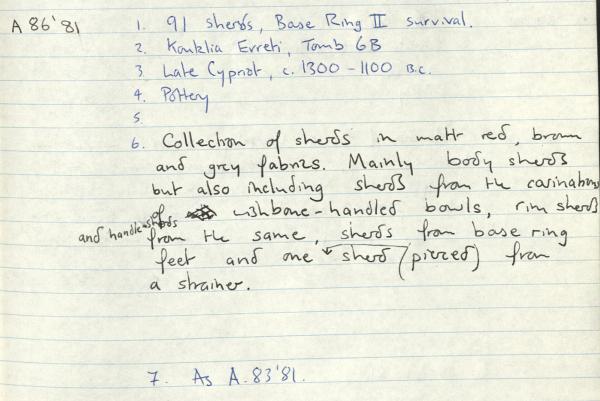 A 86'81
1. 91 sherds, Base Ring II survival.
2. Kouklia Evreti, Tomb 6B
3. Late Cypriot, c. 1300 - 1100 B.C.
4. Pottery
5.
6. Collection of sherds in matt red, brown
and grey fabrics. Mainly body sherds
but also including sherds from the carinations
of wishbone-handled bowls, rim sherds
and handle sherds from the same, sherds from base ring
feet and one sherd (pierced) from
a strainer.
7. As A.83'81.